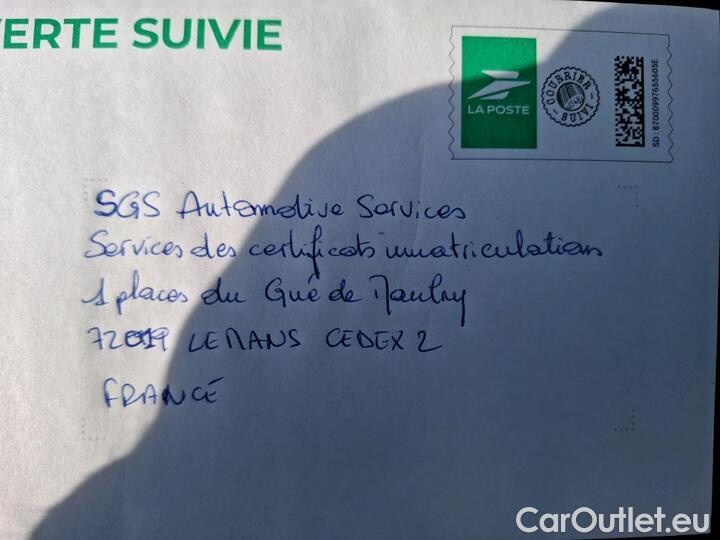 VERTE SUIVIE
LA POSTE
COURRIER SUIVI
SD : 87000997655605E
SGS Automotive Services
Services des certificats immatriculations
1 places du Gué de Maulny
72019 LE MANS CEDEX 2
FRANCE
CarOutlet.eu